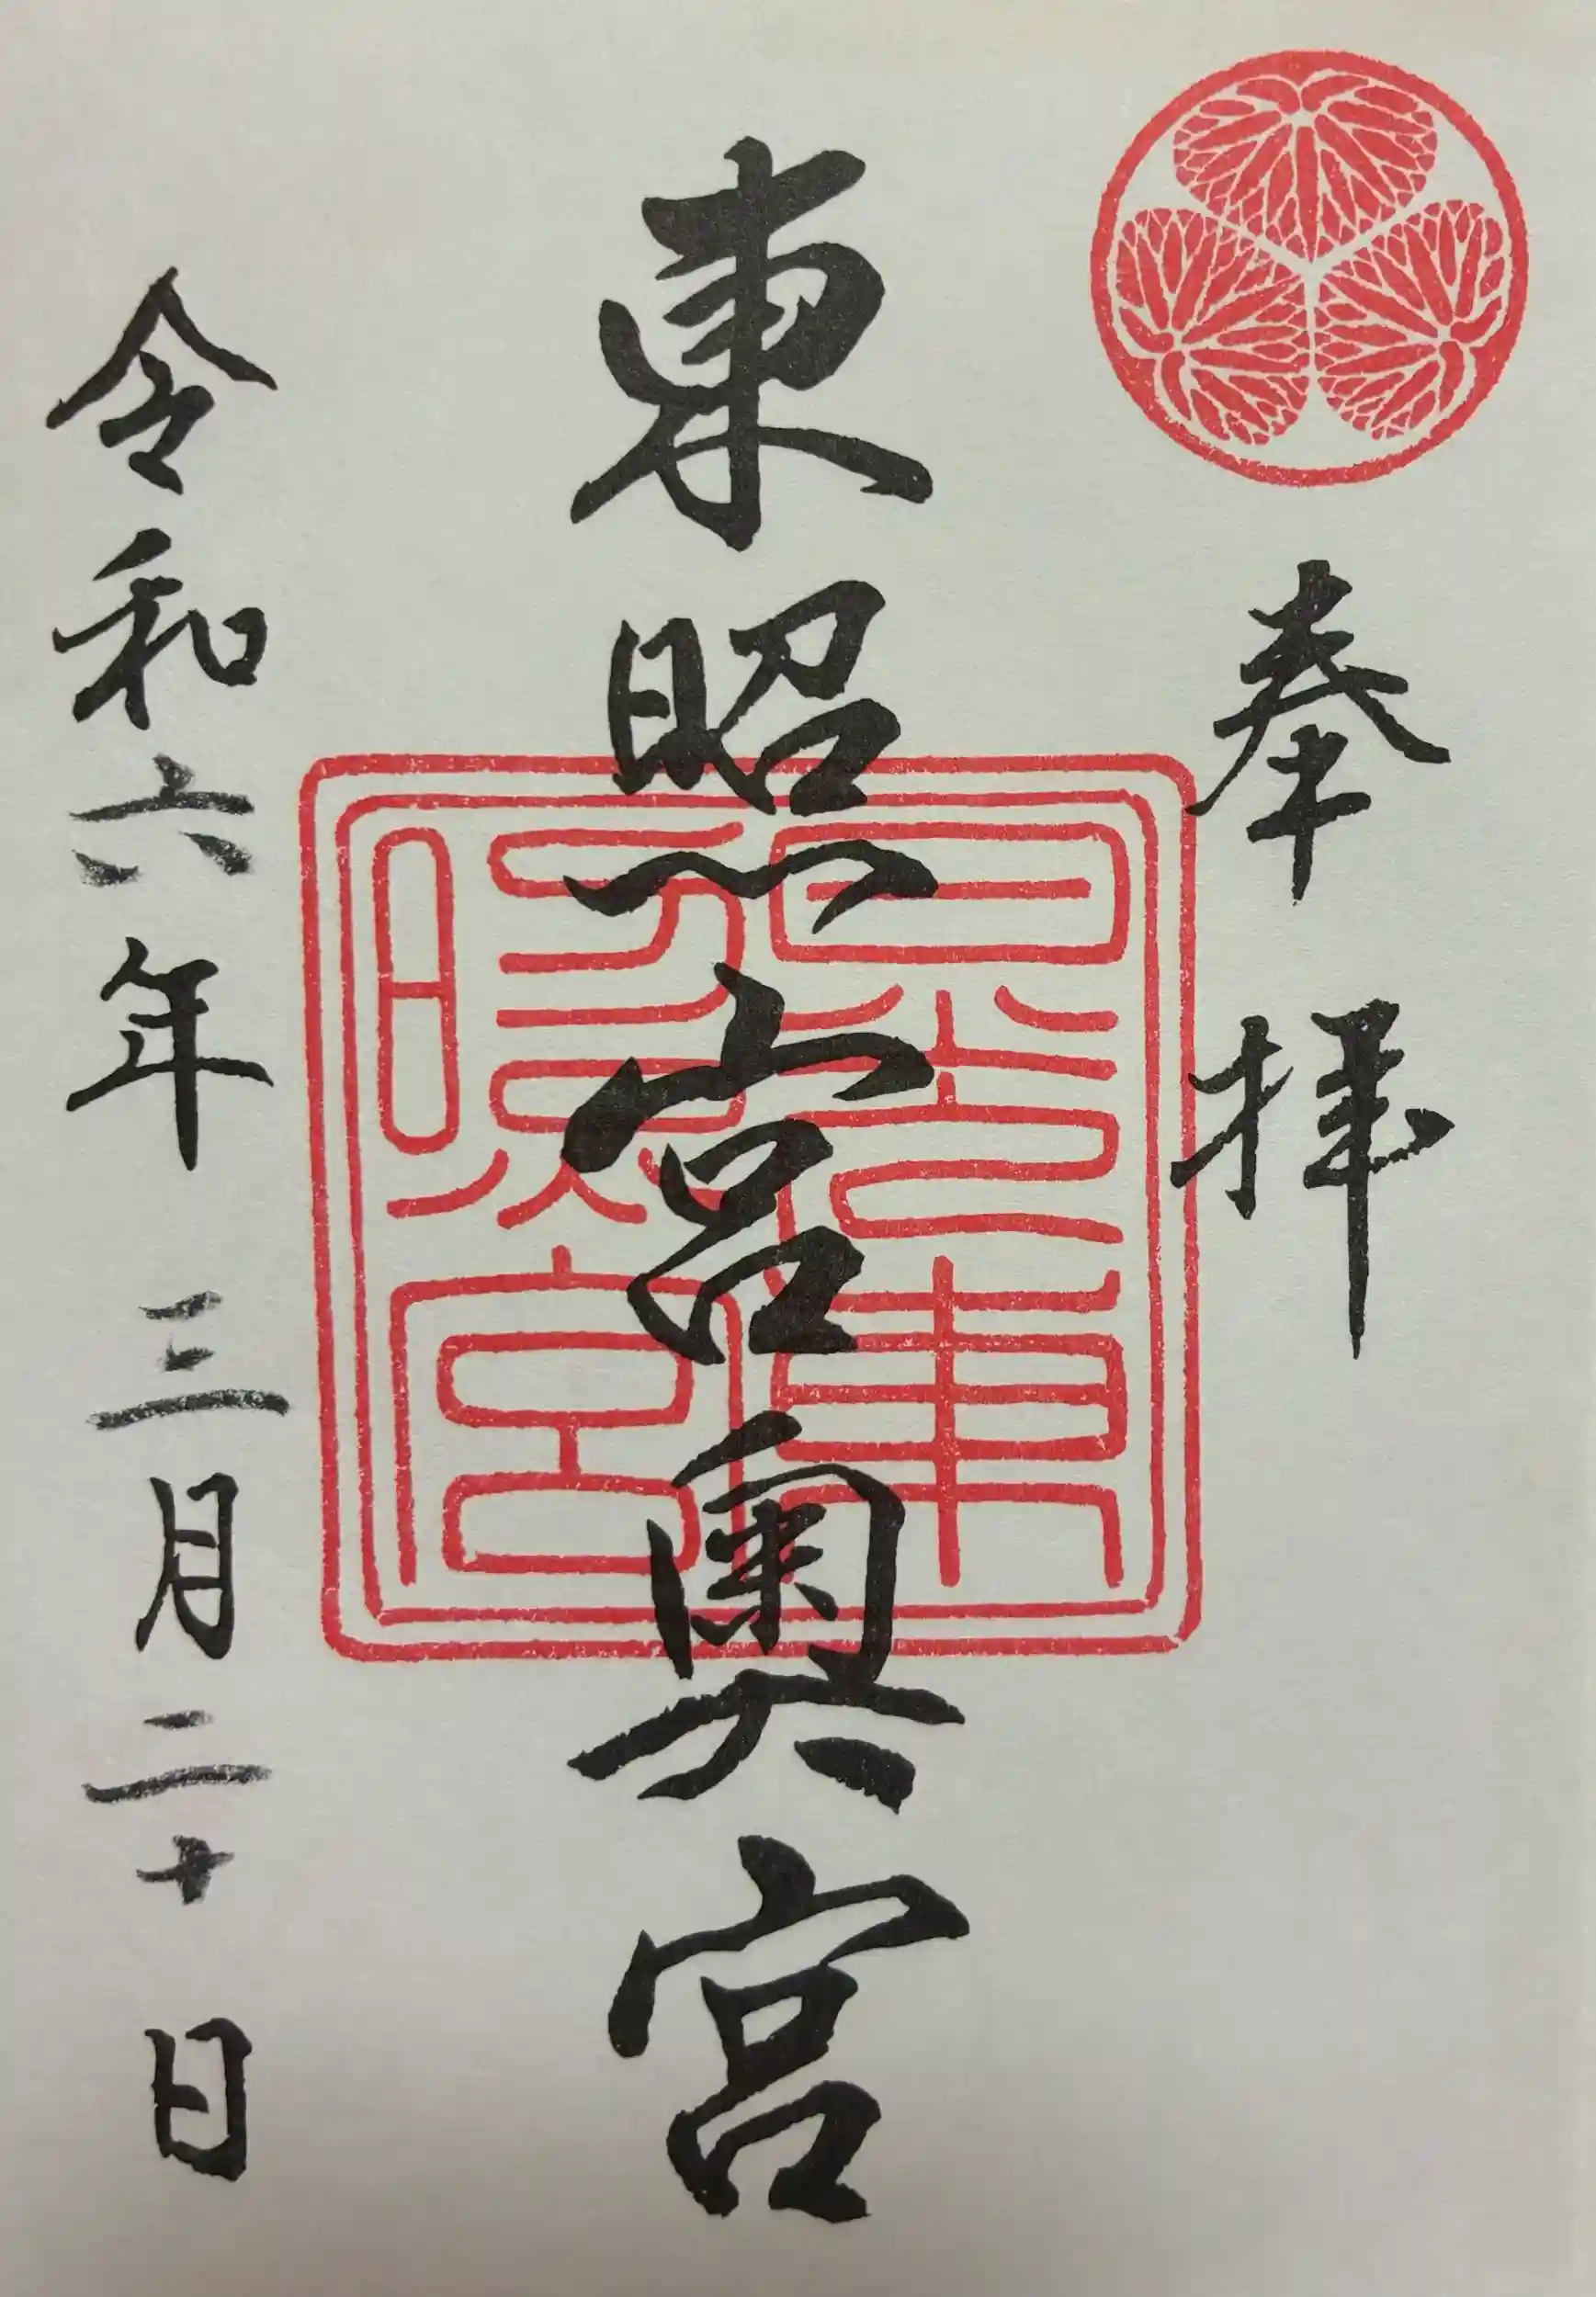 奉拝
東照宮奥宮
令和六年 三月二十日
日光東照宮